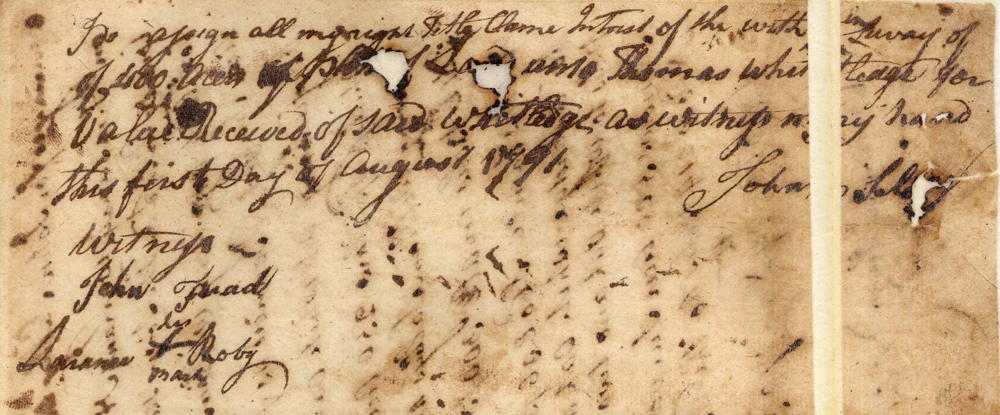 I do assign all my right Title Clame Intrust of the with in Sarvay of
of 400 Acers of Land unto Thomas Whitledge for
Value Received of said Whitledge as witness my hand
this first Day of August 1791
John
Witness
John
his
Roby
mark